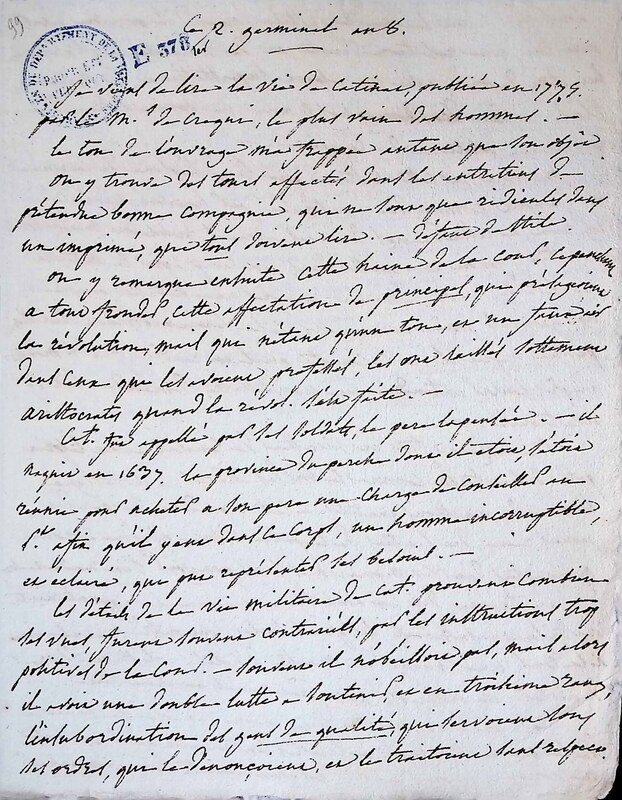 99
Ce 2. germinal an 8.
DEPARTEMENT DE LA
E 378
Je viens de lire la vie de Catinat, publiée en 1775.
par le M.is de Crequi, le plus vain des hommes. —
le ton de l'ouvrage m'a frappé autant que son objet
on y trouve des tours affectés dans les entretiens de
prétendue bonne compagnie, qui ne sont que ridicules dans
un imprimé, que tous doivent lire. — défaut de stile.
on y remarque ensuite cette haine de la cour, cependant
a tour frondée, cette affectation de principes, que préjugeoient
la révolution, mais qui n'étant qu'un ton, et un
dans ceux qui les avoient professés, les ont laissés sottement
aristocrates quand la révol. s'est faite. —
Cat. fut appellé par les soldats, le pere la pensée. — il
naquit en 1637. la province du perche dont il etoit, s'etoit
réunie pour acheter a son pere une charge de conseiller au
p.t afin qu'il y eut dans ce corps, un homme incorruptible,
et éclairé, qui put représenter ses besoins. —
les détails de la vie militaire de Cat. prouvent combien
ses vues, furent souvent contrariées, par les instructions trop
positives de la Cour. — souvent il n'obéissoit pas, mais alors
il avoit une double lutte a soutenir, et en troisieme rang,
l'insubordination des gens de qualité, que servoient sous
ses ordres, qui le dénonçoient, et le traitoient sans respect.